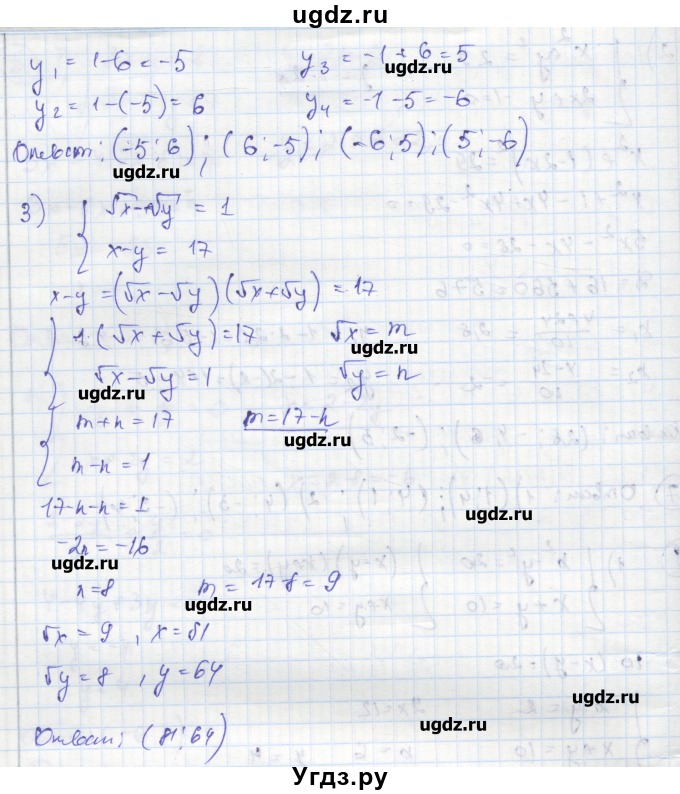 ugdz.ru
y₁ = 1-6 = -5 y₃ = -1+6 = 5
ugdz.ru
y₂ = 1-(-5) = 6 y₄ = -1-5 = -6
Ответ: (-5;6); (6;-5); (-6;5); (5;-6)
ugdz.ru
3) { √x-√y = 1
x-y = 17
x-y = (√x-√y)(√x+√y) = 17
{ 1·(√x+√y) = 17 √x = m
ugdz.ru
√x-√y = 1 √y = n
ugdz.ru
{ m+n = 17 m = 17-n
ugdz.ru
m-n = 1
17-n-n = 1
ugdz.ru
-2n = -16
ugdz.ru
n = 8 m = 17-8 = 9
ugdz.ru
√x = 9, x = 81
√y = 8, y = 64
ugdz.ru
ugdz.ru
Ответ: (81;64)
Угдз.ру